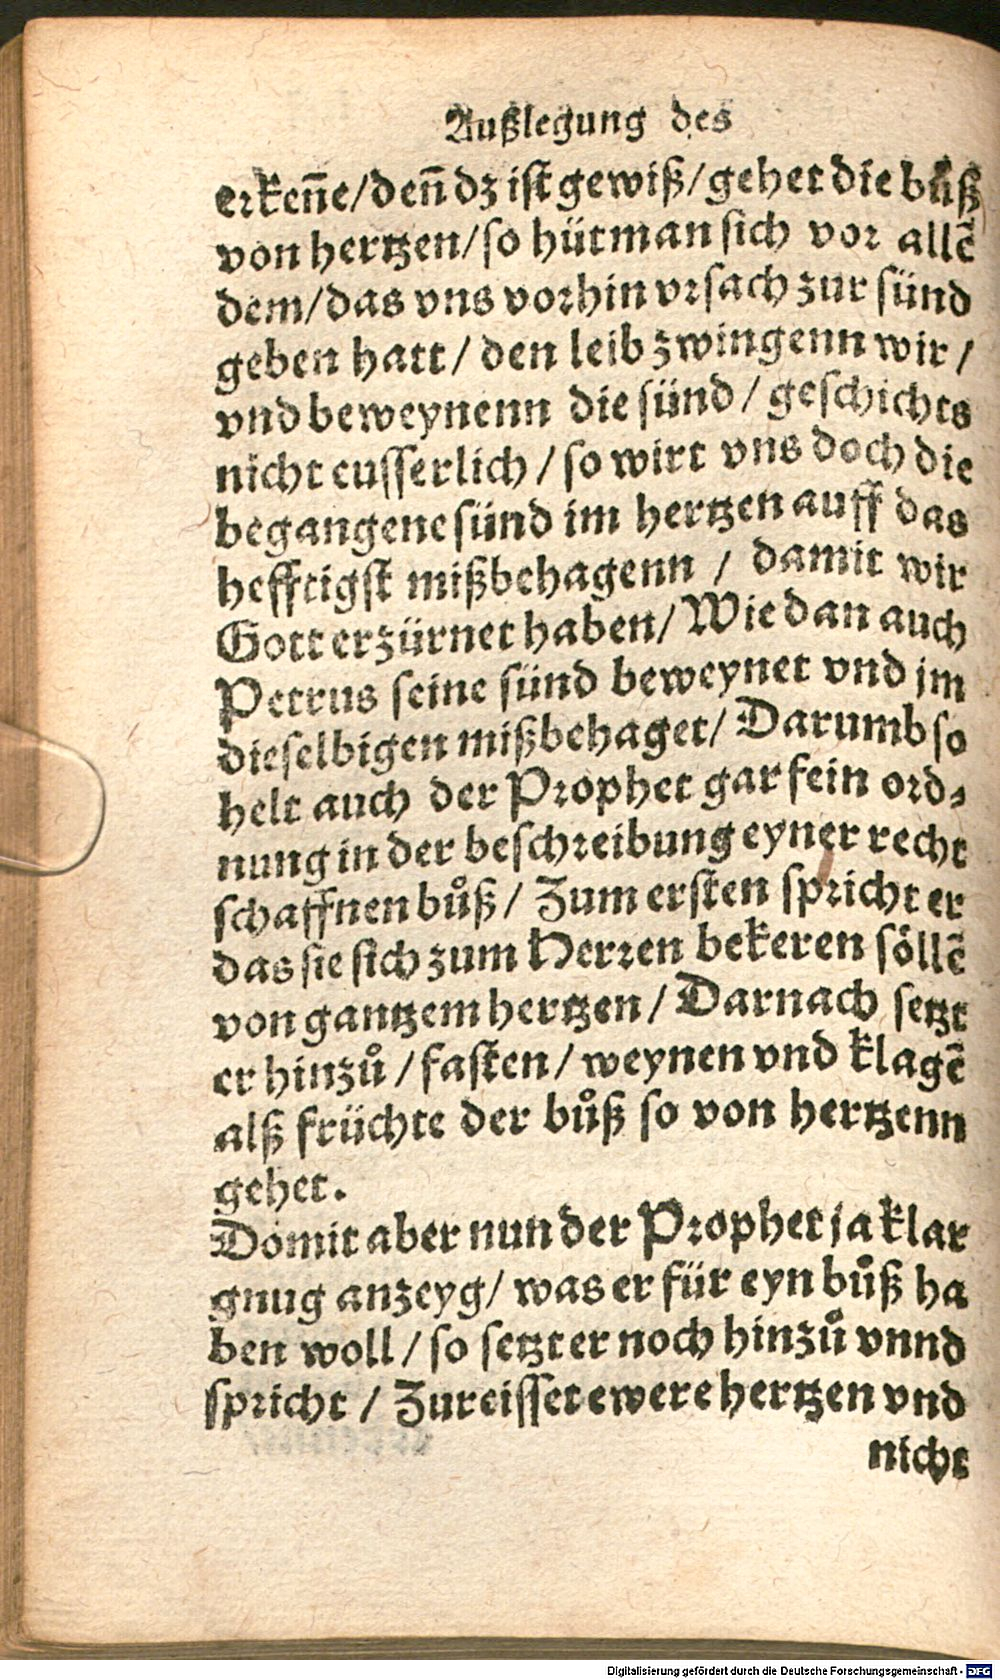 Außlegung des
erkeñe/deñ dz ist gewiß/gehet die bůß
von hertzen/so hüt man sich vor allẽ
dem/das vns vorhin vrsach zur sünd
geben hatt/den leib zwingenn wir/
vnd beweynenn die sünd/geschichts
nicht eusserlich/so wirt vns doch die
begangene sünd im hertzen auff das
hefftigst mißbehagenn/damit wir
Gott erzürnet haben/Wie dan auch
Petrus seine sünd beweynet vnd jm
dieselbigen mißbehaget/Darumb so
helt auch der Prophet gar fein ord⸗
nung in der beschreibung eyner recht
schaffnen bůß/Zum ersten spricht er
das sie sich zum Herren bekeren söllẽ
von gantzem hertzen/Darnach setzt
er hinzů/fasten/weynen vnd klagẽ
alß früchte der bůß so von hertzenn
gehet.
Domit aber nun der Prophet ja klar
gnug anzeyg/was er für eyn bůß ha
ben woll/so setzt er noch hinzů vnnd
spricht/Zureisset ewere hertzen vnd
nicht
Digitalisierung gefördert durch die Deutsche Forschungsgemeinschaft - DFG